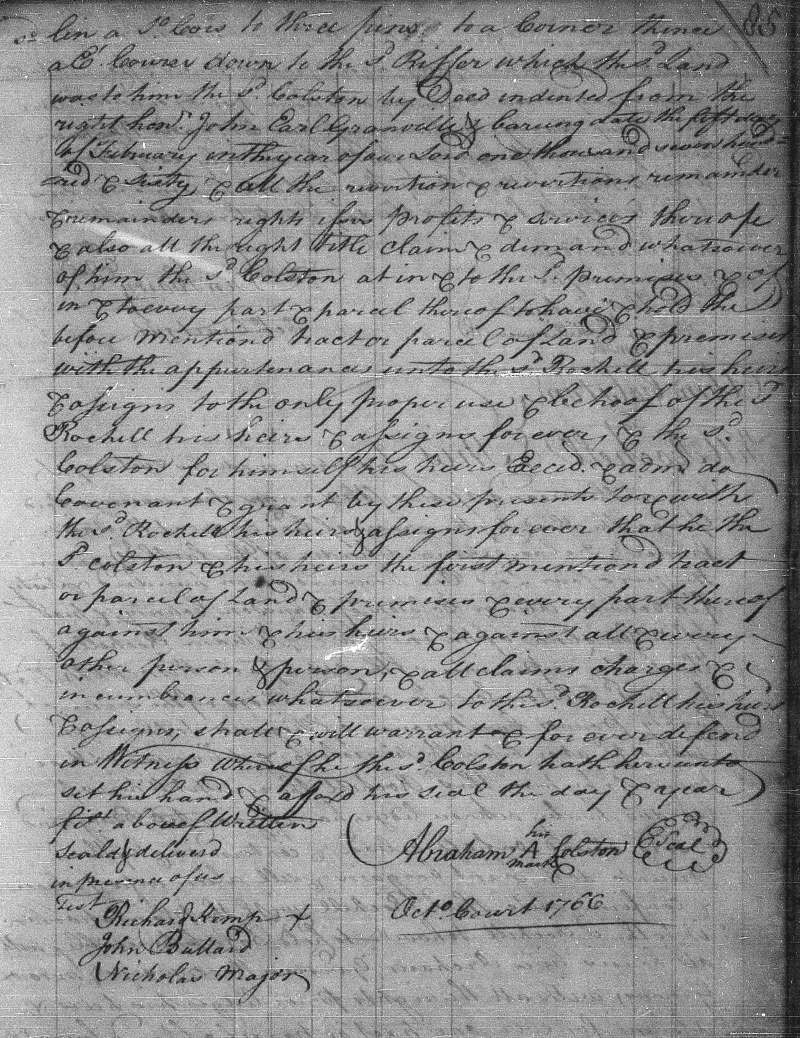 85
lin a So. Cors to three pines to a Corner thence
a Et. Courses down to the sd. Riffer which the sd. Land
was to him the sd. Colston by Deed indented from the
right honr. John Earl Granville & baring date the first day
of February in the year of our Lord one thousand seven hund=
red & sixty, & all the revertion & revertions remainder
& remainders rights ifsu profits & services thereof
& also all the right title claim & demand whatsoever
of him the sd. Colston at in & to the sd. premises & of
in & to every part & parcel thereof to have & hold the
before mentiond tract or parcel of Land & premises
with the appurtenances unto the sd. Rochell his heirs
& assigns to the only proper use & behoof of the sd.
Rochell his heirs & assigns for ever, & the sd.
Colston for himself his heirs Execd. & admr do
Covenant & grant by these presents to & with
the sd. Rochell his heirs & assigns for ever that he the
sd. colston & his heirs the first mentiond tract
or parcel of Land & premises & every part thereof
against him & his heirs & against all & every
other person & persons, & all claims charges &
incumbrances whatsoever to the sd. Rochell his heirs
& assigns, shall & will warrant & for ever defend
in Witness whereof he the sd. Colston hath hereunto
set his hand & affixd his seal the day & year
first above Written
Seald & deliverd
in presence of us
Test
Abraham his A mark Colston Seal
Richard Kemp +
John Ballard
Nicholas Major
Octo. Court 1766